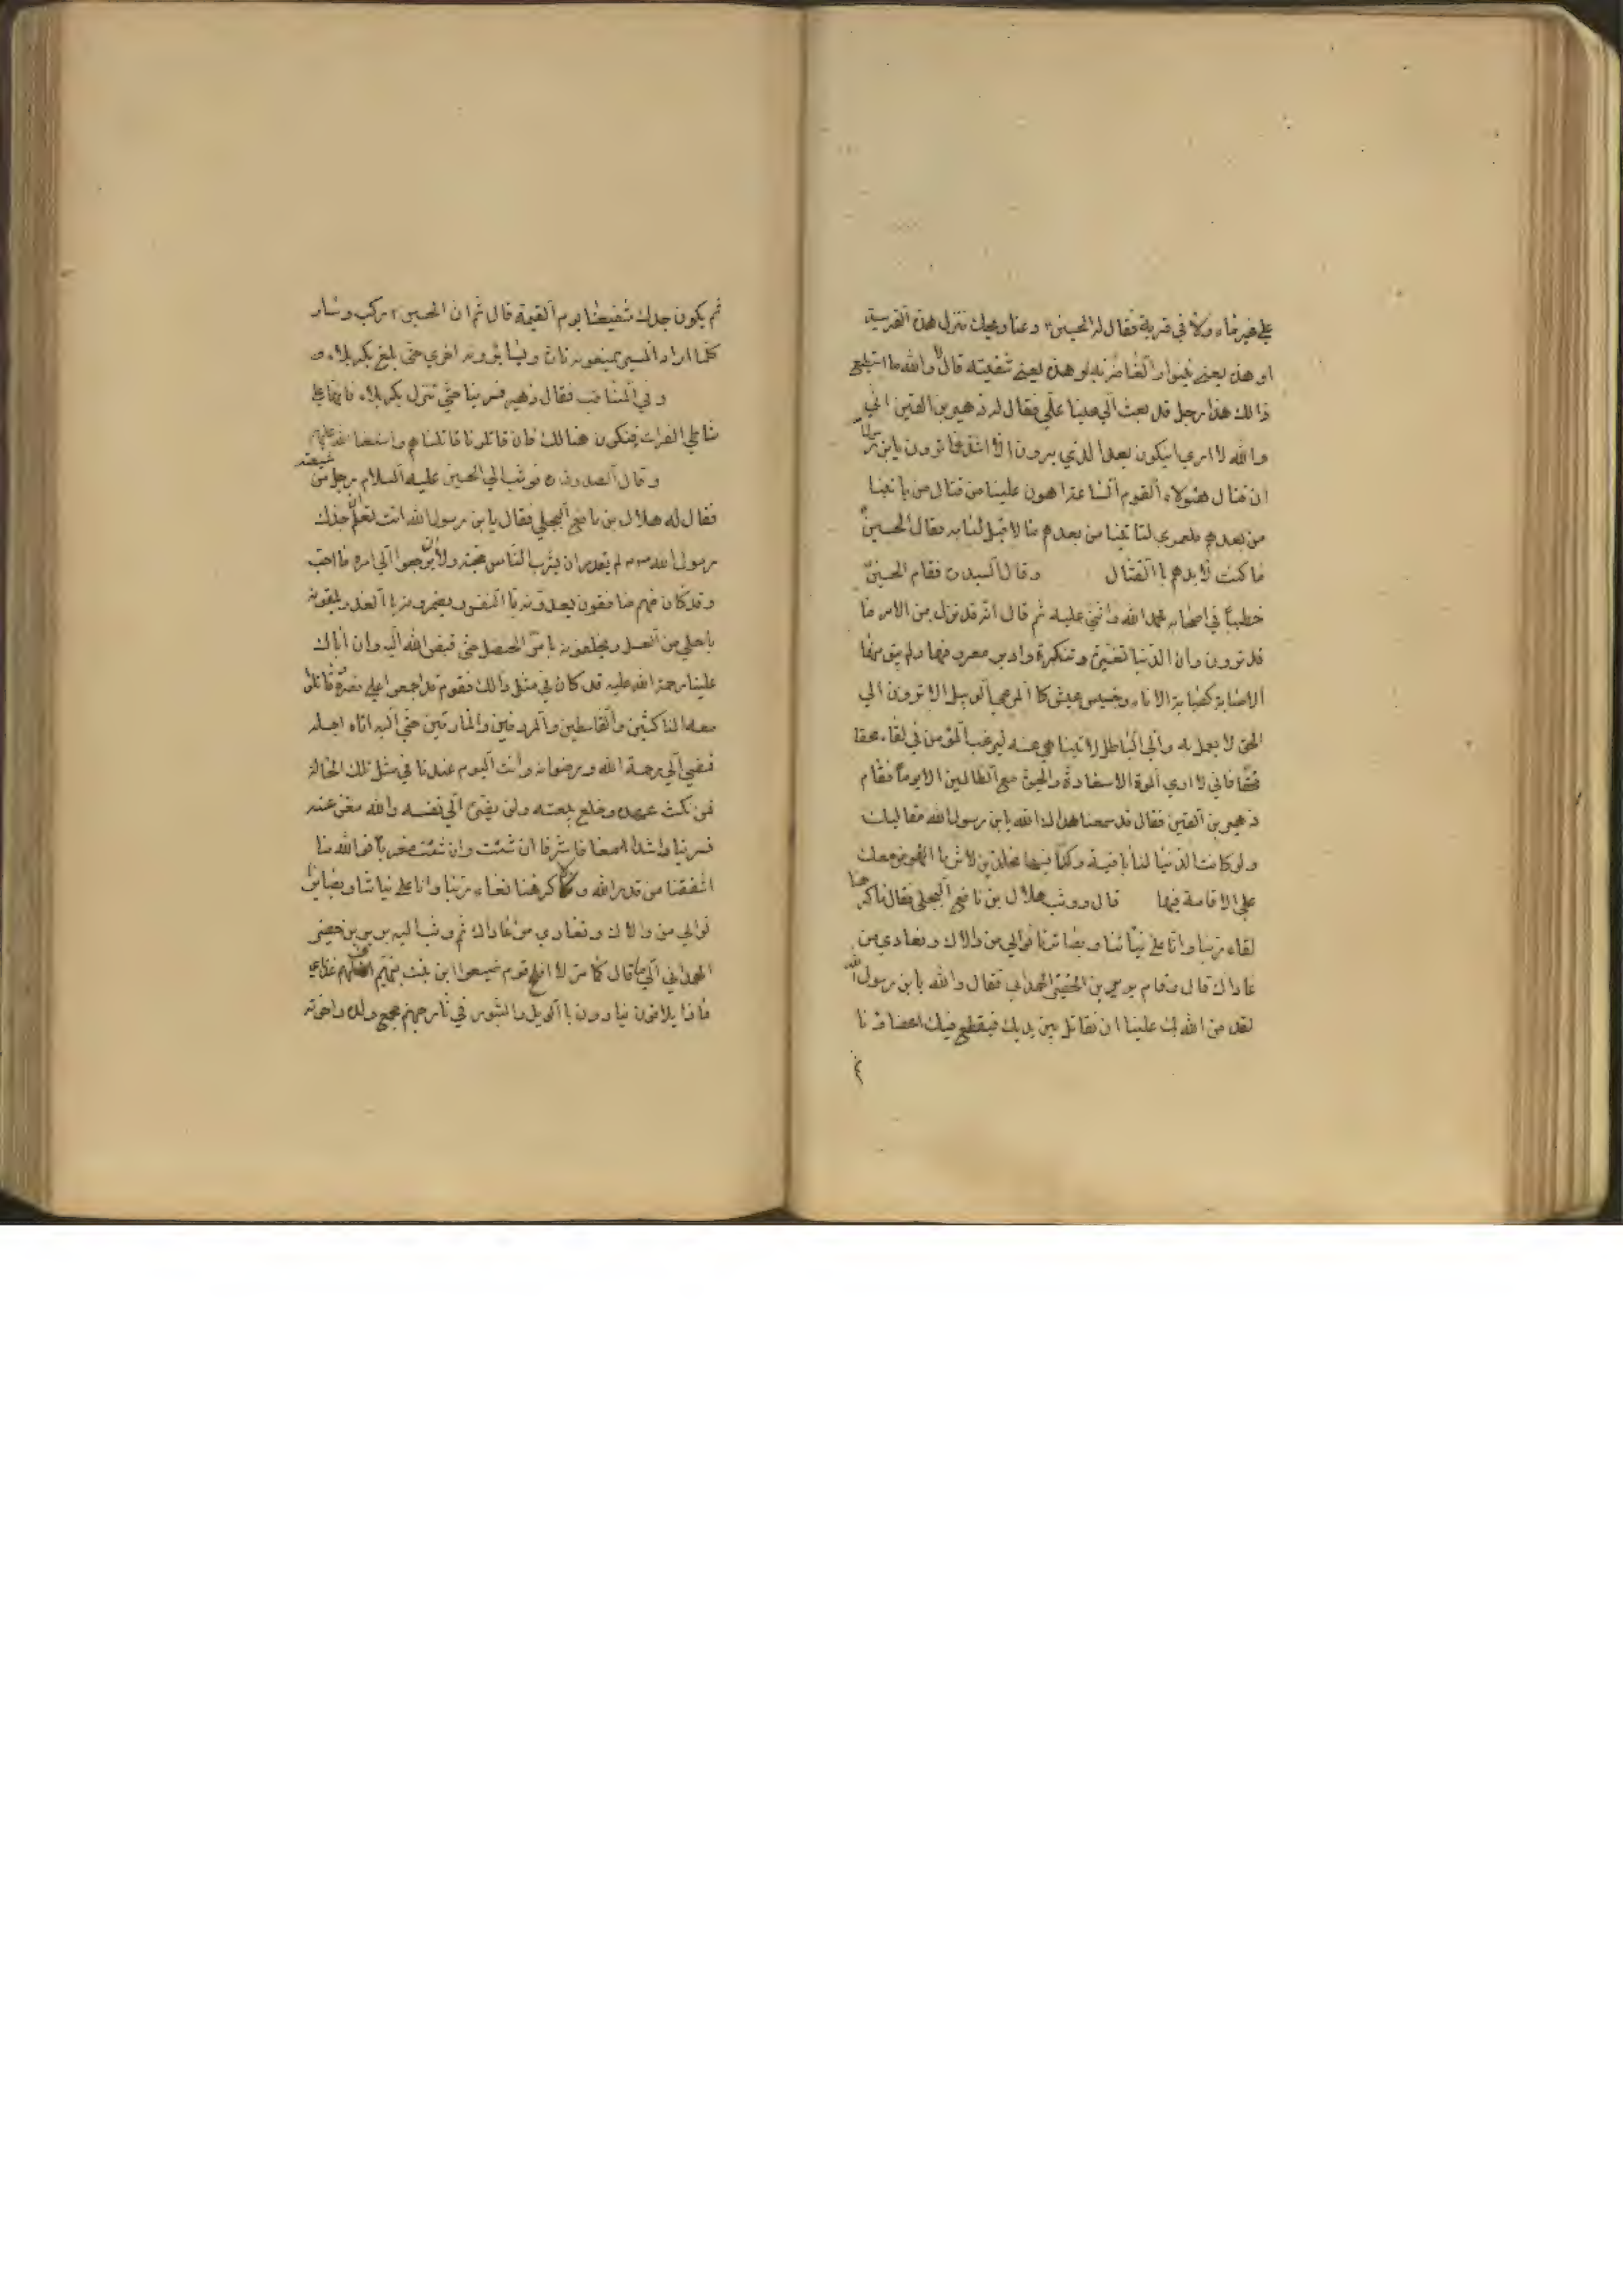 على غير ماء ولا في قرية فقال له الحسين ء دعنا ويحك ننزل هذه القرية
او هذه يعني نينوا والغاضرية او هذه يعني شفيته قال لا والله ما استطيع
ذالك هذا رجل قد بعث الي عينا علي فقال له زهير بن القين اني
والله لا اري ان يكون بعد الذي يرون الا اشد مما ترون يا بن رسول الله
ان قتال هئولاء القوم الساعة اهون علينا من قتال من يا تينا
من بعدهم فلعمري لتا تينا من بعدهم ما لا قبل لنا به فقال الحسين
ما كنت لابدهم با القتال وقال السيد ره فقام الحسين
خطيباً في اصحابه فحمد الله واثني عليه ثم قال انه قد نزل من الامر ما
قد ترون وان الدنيا تغيرت وتنكرت وادبر معروفها ولم يبق منها
الا صبابة كصبابة الاناء وخسيس عيش كا المرعي الوبيل الا ترون الي
الحق لا يعمل به والي الباطل لا يتناهي عنه ليرغب المؤمن في لقاء محقا
محقا فاني لا اري الموت الا سعادة والحيوة مع الظالمين الا برما فقام
زهير بن القين فقال قد سمعنا هداك الله يا بن رسول الله مقالتك
ولو كانت الدنيا لنا باقية وكنا فيها مخلدين لاثرنا النهوض معك
علي الاقامة فيها قال ووثب هلال بن نافع البجلي فقال ما كرهنا
لقاء ربنا وانا علي نياتنا وبصائرنا نوالي من والاك ونعادي من
عاداك قال وقام برير بن الخضير الهمداني فقال والله يا بن رسول الله
لقد من الله بك علينا ان نقاتل بين يديك فيقطع فيك اعضاؤنا
ثم يكون جدك شفيعنا يوم القيمة قال ثم ان الحسين ء ركب وسار
كلما اراد المسير يمنعونه تارة ويسايرونه اخري حتي بلغ بكربلاء
وفي المناقب فقال زهير فسر بنا حتي ننزل بكربلاء فانها علي
شاطي الفرات فنكون هنالك فان قاتلونا قاتلناهم واستعنا الله عليهم
وقال الصدوق ره فوثب الي الحسين عليه السلام رجل من شيعته
فقال له هلال بن نافع البجلي فقال يا بن رسول الله انت تعلم ان جدك
رسول الله لم يقدر ان يشرب الناس محبته ولا ان يرجعوا الي امره ما احب
وقد كان منهم منافقون يعدونه با النصر ويضمرون با الغدر يلقونه
باحلي من العسل ويخلفونه بامر الحنظل حتي قبض الله اليه وان اباك
عليا رحمة الله عليه قد كان في مثل ذالك فقوم قد اجمعوا علي نصره وقاتلوا
معه الناكثين والقاسطين والمارقين حتي اتاه اجله
فمضي الي رحمة الله ورضوانه وانت اليوم عندنا في مثل تلك الحالة
فمن نكث عهده وخلع بيعته ولن يضر الي نفسه والله مغن عنه
فسر بنا راشدا معافا مشرقا ان شئت وان شئت مغربا فوالله ما
اشفقنا من قدر الله وما كرهنا لقاء ربنا وانا علي نياتنا وبصايرنا
نوالي من والاك ونعادي من عاداك ثم وثب اليه برير بن خضير
الهمداني الي ما قال كما مر لا افلح قوم ضيعوا ابن بنت نبيهم
ماذا يلاقون ينادون با الويل والثبور في نار جهنم فجمع ولده واخوته